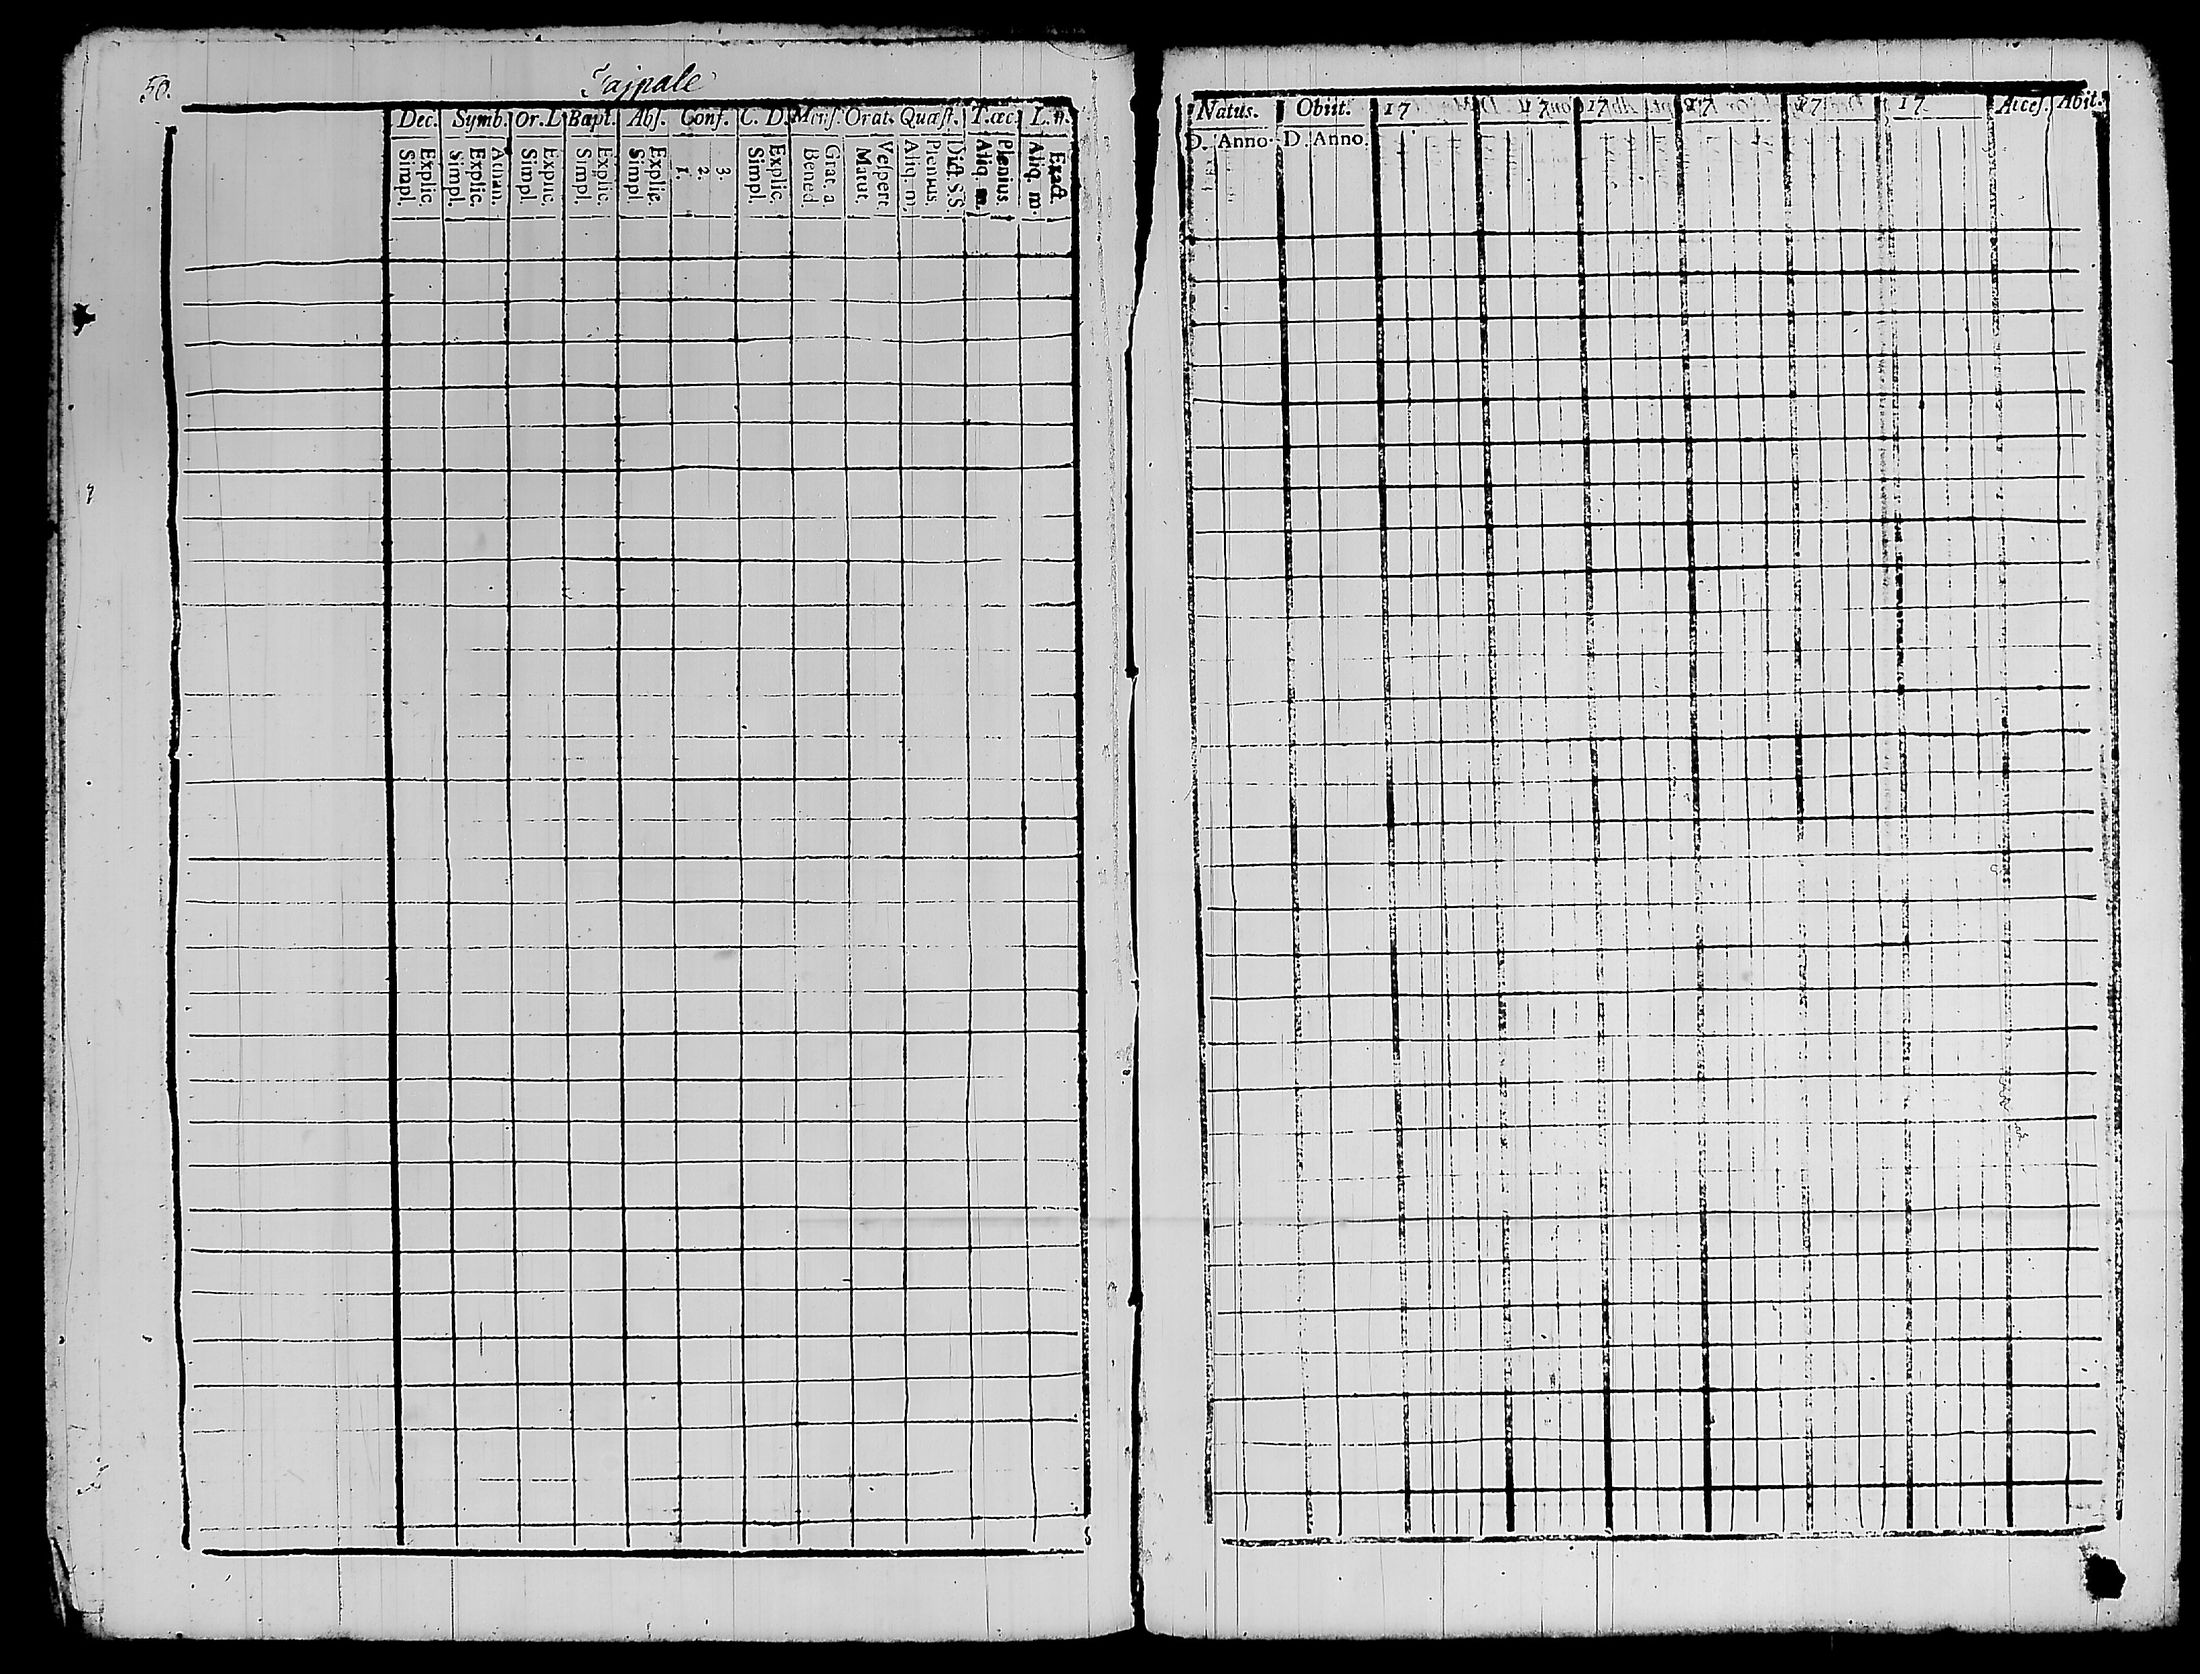 50. Taipale
Dec. Symb. Or. D Bapt. Abs. Conf. C. D. Mens. Orat. Quæst. T. œc. L. n.
Explic. Simpl.
Athan. Explic. Simpl.
Explic. Simpl.
Explic. Simpl.
Explic. Simpl.
3. 2. 1.
Explic. Simpl.
Grat. a. Bened.
Vespert. Matut.
Dict. S.S. Plenius. Aliq. m.
Plenius. Aliq. m.
Exact. Aliq. m.
Natus. Obiit. 17 17 17 17 17 17 Acces. Abit.
D. Anno. D. Anno.